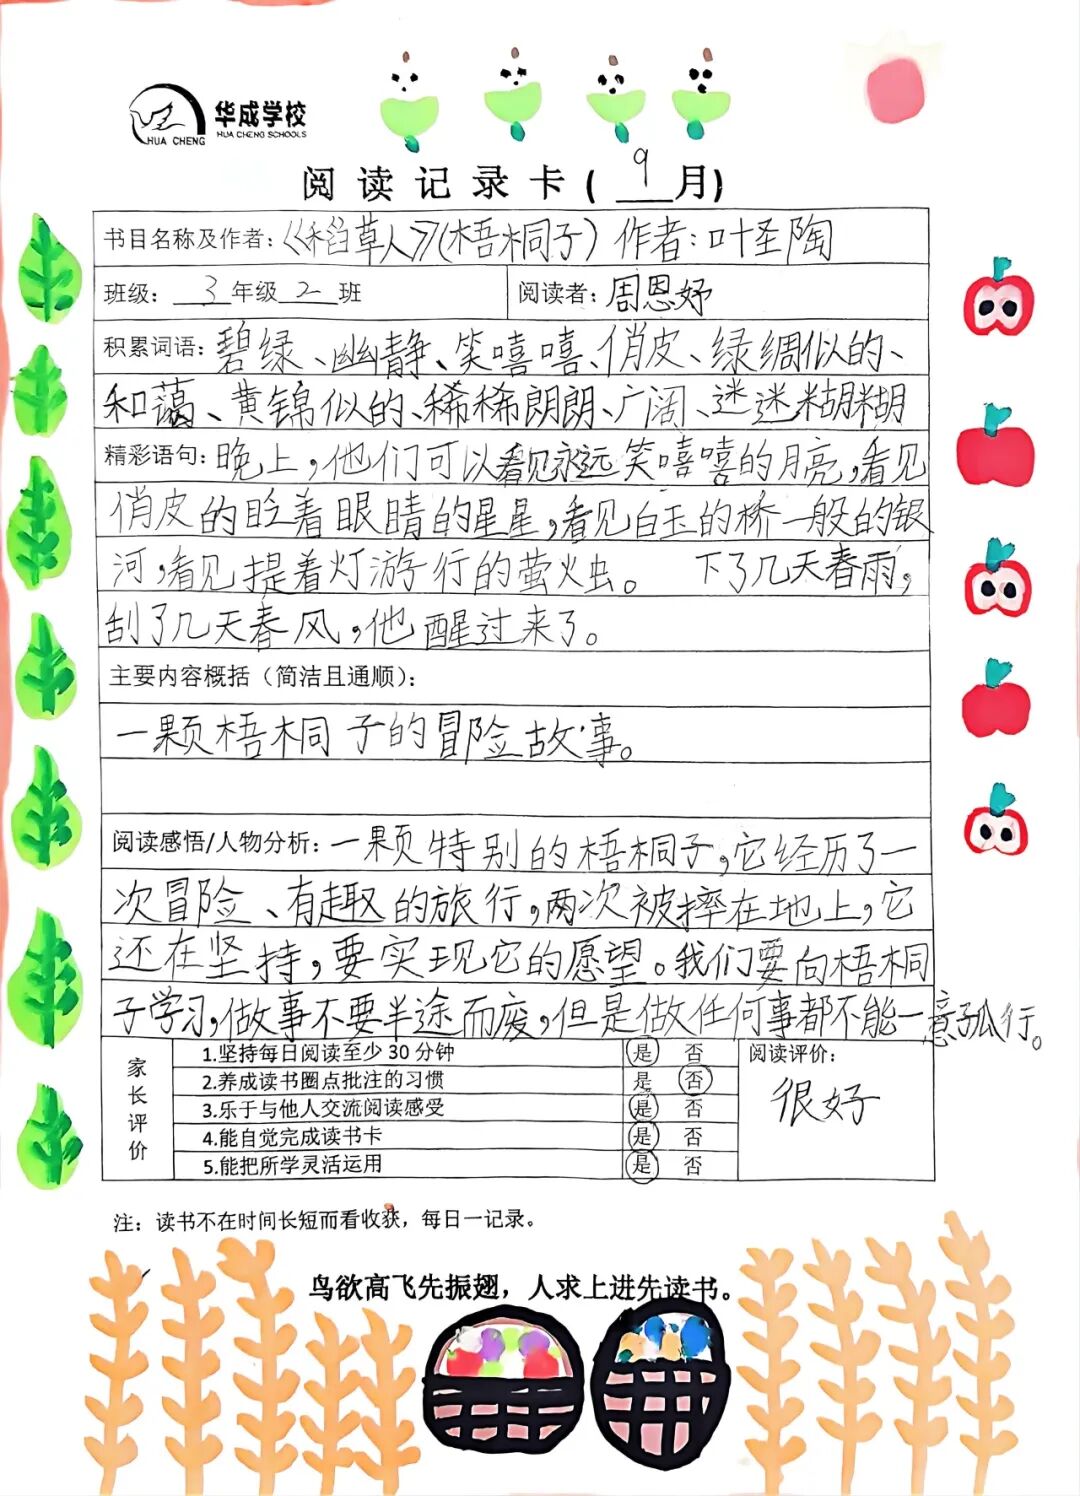 华成学校
HUA CHENG SCHOOLS
HUA CHENG
阅读记录卡(9月)
书目名称及作者:《稻草人》(梧桐子) 作者:叶圣陶
班级: 3年级2班 阅读者:周恩妤
积累词语:碧绿、幽静、笑嘻嘻、俏皮、绿绸似的、
和蔼、黄锦似的、稀稀朗朗、广阔、迷迷糊糊
精彩语句:晚上,他们可以看见永远笑嘻嘻的月亮,看见
俏皮的眨着眼睛的星星,看见白玉的桥一般的银
河,看见提着灯游行的萤火虫。 下了几天春雨,
刮了几天春风,他醒过来了。
主要内容概括(简洁且通顺):
一颗梧桐子的冒险故事。
阅读感悟/人物分析:一颗特别的梧桐子,它经历了一
次冒险、有趣的旅行,两次被摔在地上,它
还在坚持,要实现它的愿望。我们要向梧桐
子学习,做事不要半途而废,但是做任何事都不能一意孤行。
家长评价
1.坚持每日阅读至少30分钟 是 否
2.养成读书圈点批注的习惯 是 否
3.乐于与他人交流阅读感受 是 否
4.能自觉完成读书卡 是 否
5.能把所学灵活运用 是 否
阅读评价:
很好
注:读书不在时间长短而看收获,每日一记录。
鸟欲高飞先振翅,人求上进先读书。